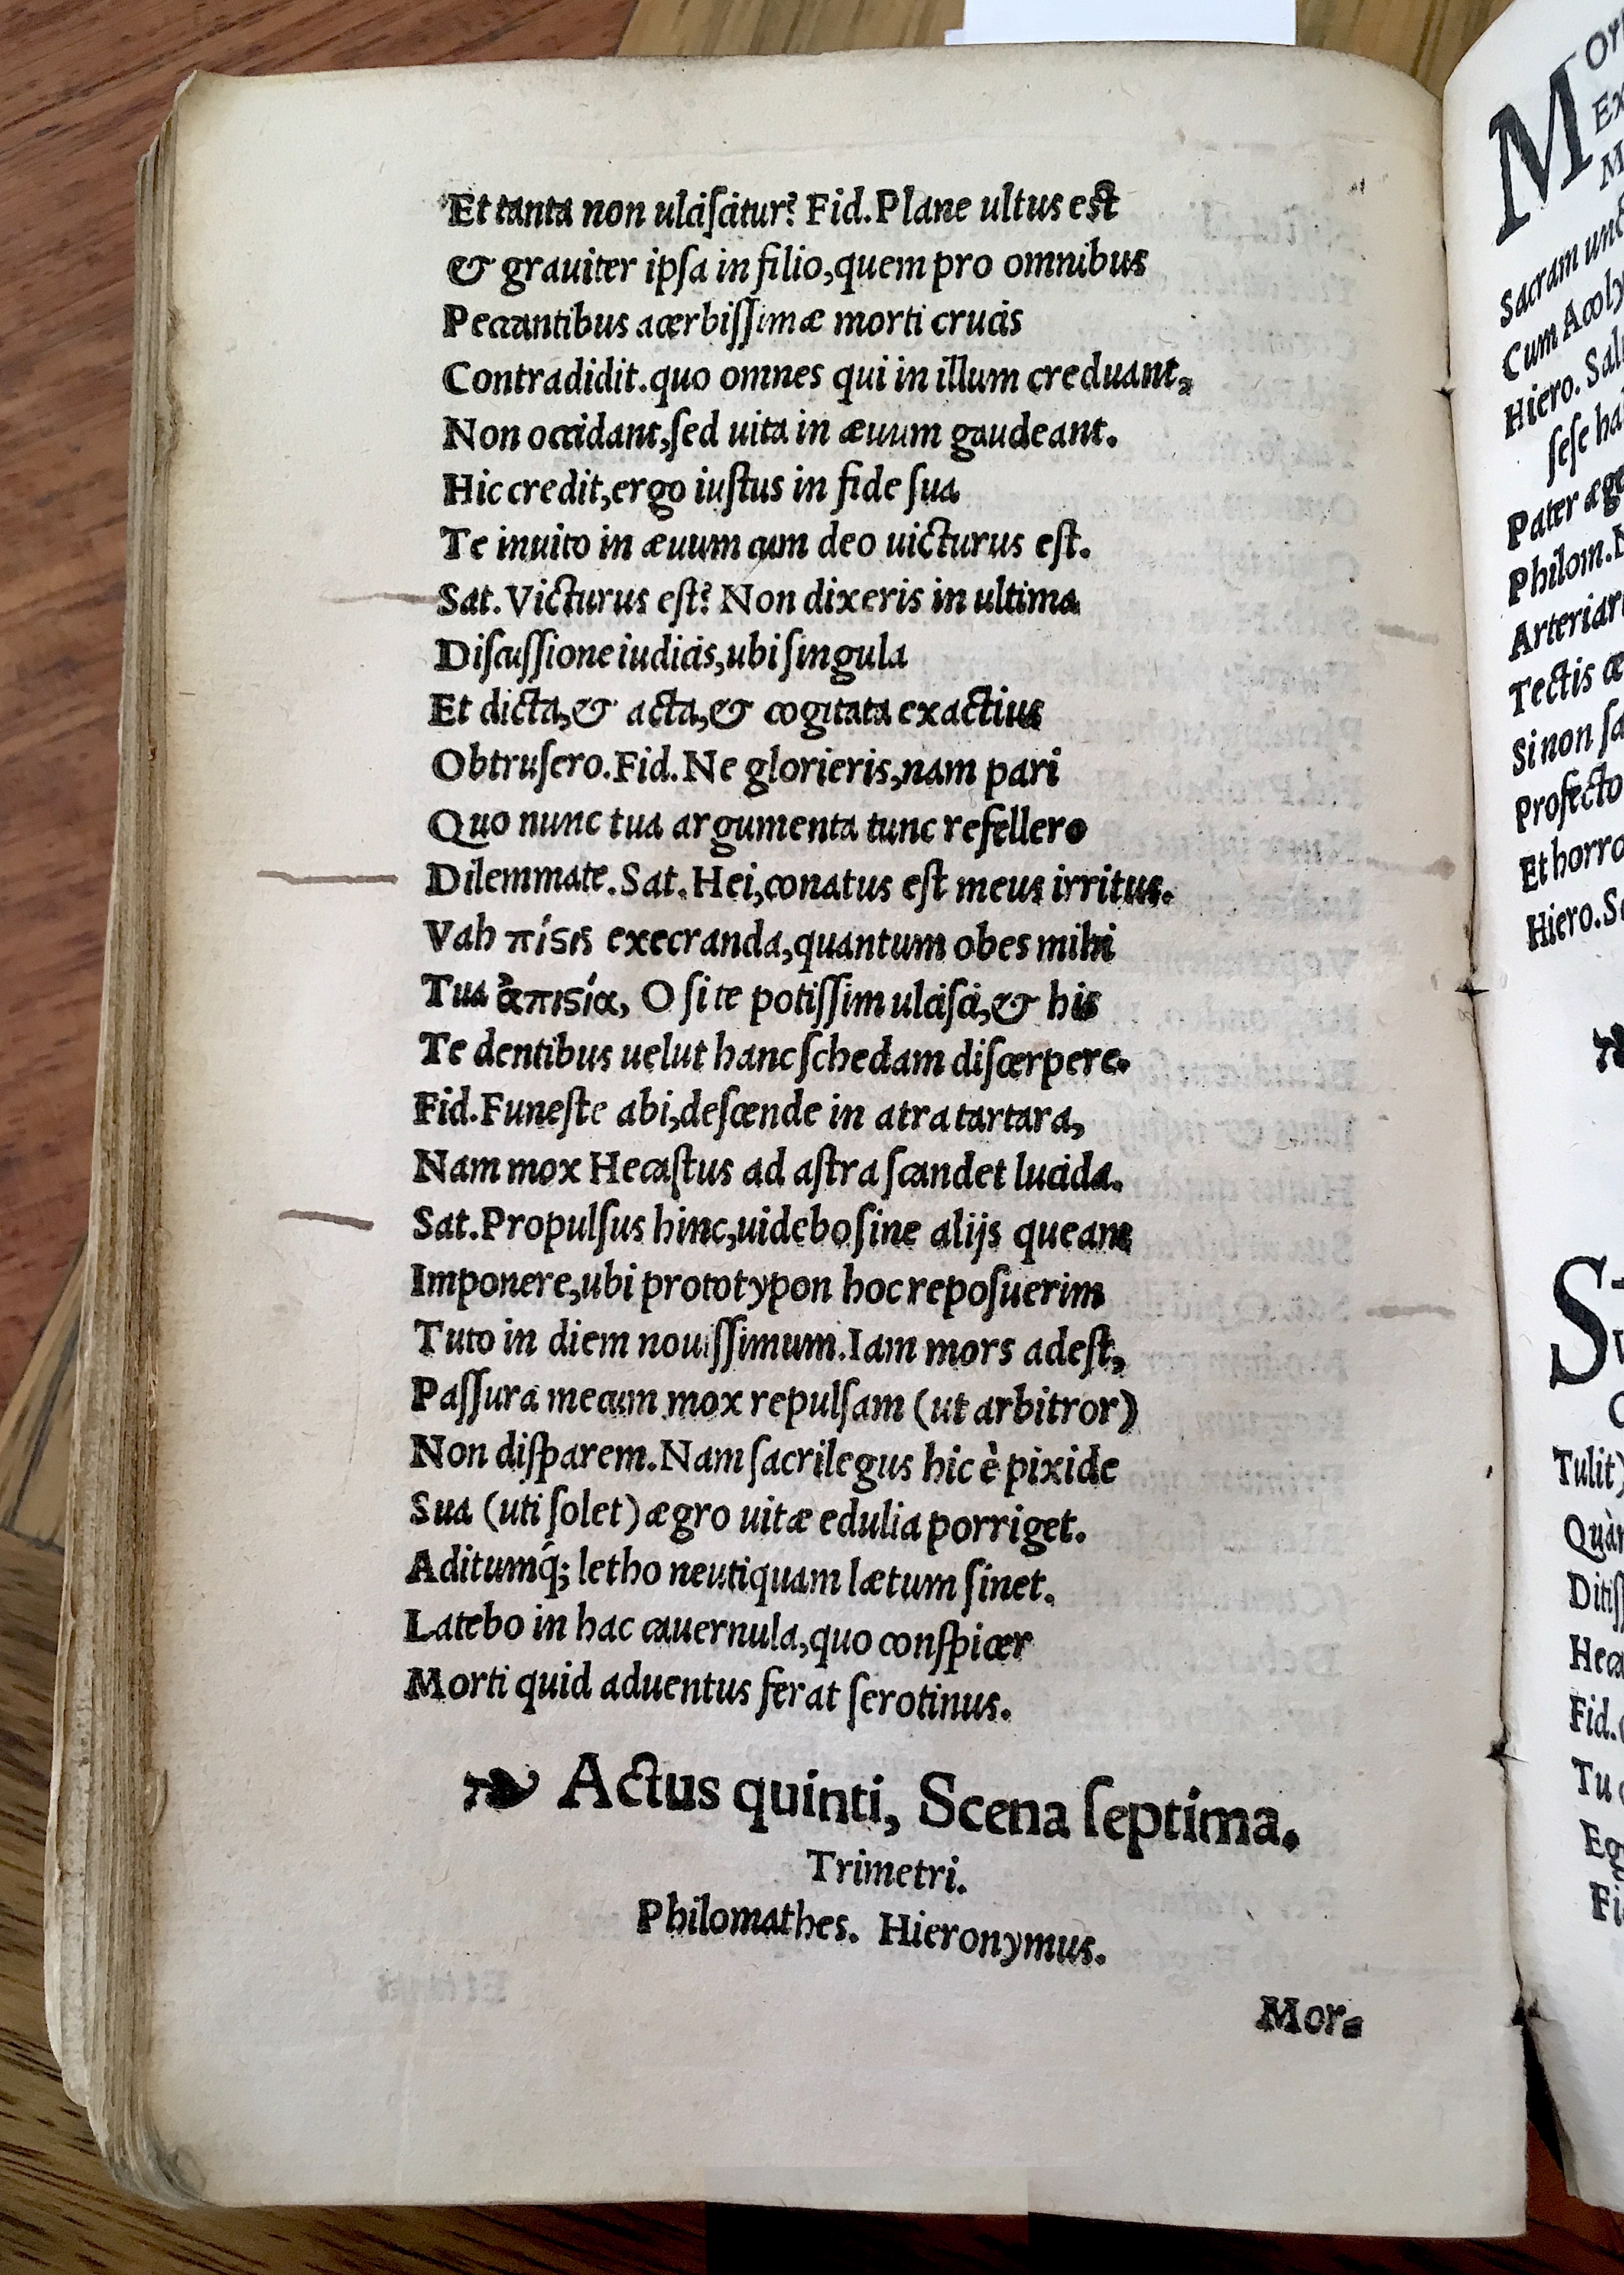 Et tanta non ulciſcitur? Fid. Plane ultus eſt
& grauiter ipſa in filio, quem pro omnibus
Peccantibus acerbiſſimæ morti crucis
Contradidit. quo omnes qui in illum creduant,
Non occidant, ſed uita in æuum gaudeant.
Hic credit, ergo iuſtus in fide ſua
Te inuito in æuum cum deo uicturus eſt.
Sat. Victurus eſt? Non dixeris in ultima
Diſcuſſione iudicis, ubi ſingula
Et dicta, & acta, & cogitata exactius
Obtruſero. Fid. Ne glorieris, nam pari
Quo nunc tua argumenta tunc refellero
Dilemmate. Sat. Hei, conatus eſt meus irritus.
Vah πίϛις execranda, quantum obes mihi
Tua ἀπιϛία, O ſi te potiſſim ulciſci, & his
Te dentibus uelut hanc ſchedam diſcerpere.
Fid. Funeſte abi, deſcende in atra tartara,
Nam mox Hecaſtus ad aſtra ſcandet lucida.
Sat. Propulſus hinc, uidebo ſine alijs queam
Imponere, ubi prototypon hoc repoſuerim
Tuto in diem nouiſſimum. Iam mors adeſt,
Paſſura mecum mox repulſam (ut arbitror)
Non diſparem. Nam ſacrilegus hic è pixide
Sua (uti ſolet) ægro uitæ edulia porriget.
Aditumq́; letho neutiquam lætum ſinet.
Latebo in hac cauernula, quo conſpicer
Morti quid aduentus ferat ſerotinus.
❧ Actus quinti, Scena ſeptima.
Trimetri.
Philomathes. Hieronymus.
Mor-
M
Sacram
Cum
Hiero.
ſeſe
Pater
Philom.
Tectis
Si non
Profecto
Et
Hiero.
S
Tulit
Fid.
Tu